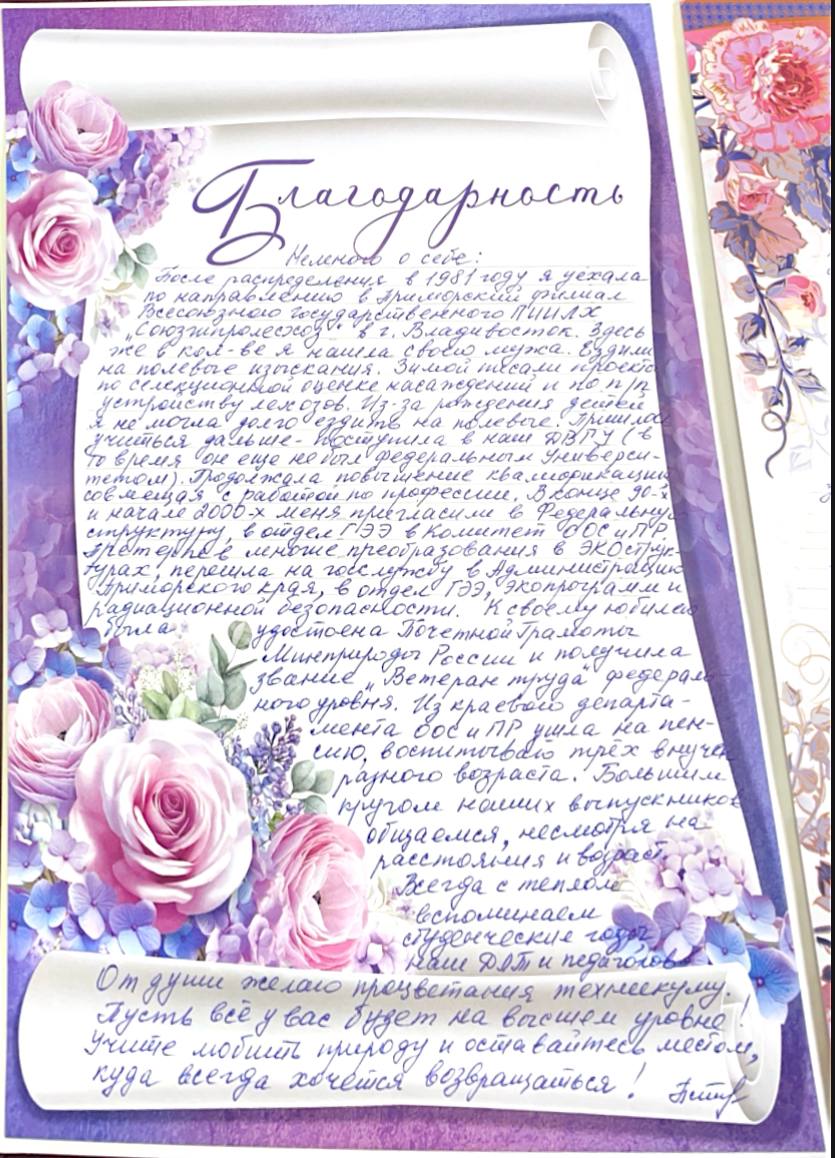 Благодарность
Немного о себе:
После распределения в 1981 году я уехала
по направлению в Приморский филиал
Всесоюзного государственного ПИИЛХ
„Союзгипролесхоз" в г. Владивосток. Здесь
же в кол-ве я нашла своего мужа. Ездили
на полевые изыскания. Зимой писали проекты
по селекционной оценке насаждений и по п/п
устройству лехозов. Из-за рождения детей
я не могла долго ездить на полевые. Пришлось
учиться дальше - поступила в наш ДВГУ (в
то время он еще не был федеральным универси-
тетом). Продолжала повышение квалификации
совмещая с работой по профессии. В конце 90-х
и начале 2000-х меня пригласили в Федеральную
структуру, в отдел ГЭЭ в Комитет ООС и ПР
Претерпев многие преобразования в экострук-
турах, перешла на госслужбу в Администрацию
Приморского края, в отдел ГЭЭ, экопрограмм и
радиационной безопасности. К своему юбилею
была удостоена Почетной Грамоты
Минприроды России и получила
звание „Ветеран труда" федераль-
ного уровня. Из краевого департа-
мента ООС и ПР ушла на пен-
сию, воспитываю трёх внучек
разного возраста. Большим
кругом наших выпускников
общаемся, несмотря на
расстояния и возраст.
Всегда с теплом
вспоминаем
студенческие годы
наш ДЛТ и педагогов
От души желаю процветания техникуму.
Пусть всё у вас будет на высшем уровне!
Учите любить природу и оставайтесь местом,
куда всегда хочется возвращаться!